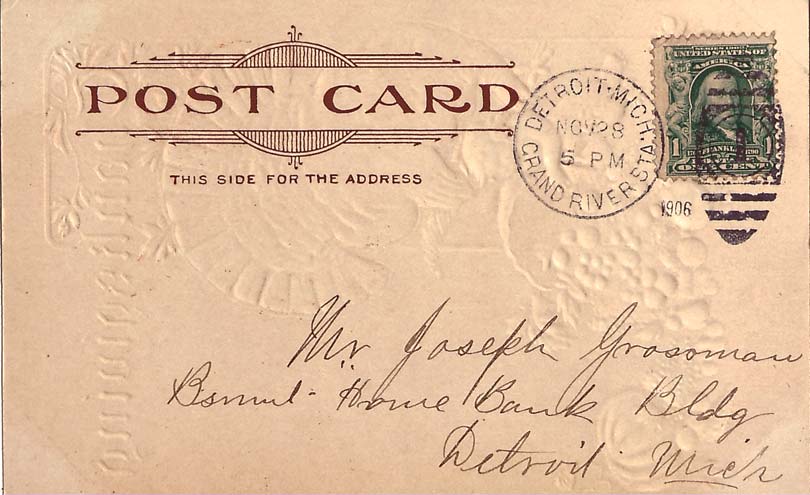 POST CARD
THIS SIDE FOR THE ADDRESS
DETROIT, MICH.
NOV 28
5 PM
GRAND RIVER STA.
1906
SERIES 1902
UNITED STATES OF
AMERICA
1 1
ONE CENT
Mr Joseph Grossman
Bsmnt - Home Bank Bldg
Detroit Mich